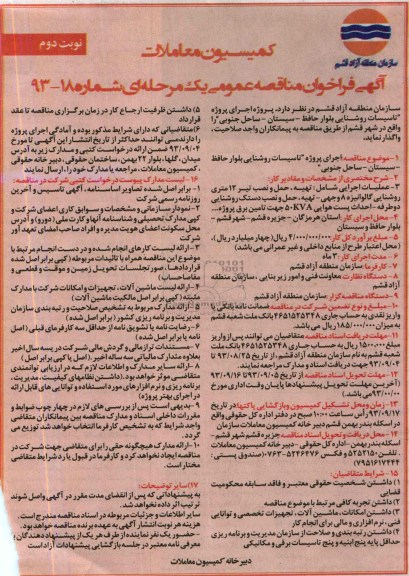 سازمان منطقه آزاد قشم
نوبت دوم
کمیسیون معاملات
آگهی فراخوان مناقصه عمومی یک مرحله‌ای شماره ۱۸-۹۳
سازمان منطقه آزاد قشم در نظر دارد، پروژه اجرای پروژه
"تاسیسات روشنایی بلوار حافظ - سیستان - ساحل جنوبی" را
واقع در شهر قشم از طریق مناقصه به پیمانکاران واجد صلاحیت،
واگذار نماید.
۱- موضوع مناقصه: اجرای پروژه "تاسیسات روشنایی بلوار حافظ
- سیستان - ساحل جنوبی
۲- شرح مختصری از مشخصات و مقادیر کار:
۳- عملیات اجرایی شامل: تهیه، حمل و نصب تیر ۱۲ متری
روشنایی گالوانیزه ۸ وجهی - تهیه، حمل و نصب دستک روشنایی
دو طرفه - احداث پست هوایی ۵۰KVA جهت تامین برق پروژه...
۴- محل اجرای کار: استان هرمزگان - جزیره قشم - شهر قشم -
بلوار حافظ و سیستان
۵- مبلغ برآورد کل کار: ۴/۰۰۰/۰۰۰/۰۰۰ ریال (چهار میلیارد ریال).
(محل اعتبار: طرح از منابع داخلی و غیر عمرانی می باشد)
۶- مدت اجرای کار: ۲ ماه
۷- کارفرما: سازمان منطقه آزاد قشم
۸- دستگاه نظارت: معاونت فنی و امور زیر بنایی، سازمان منطقه
آزاد قشم
۹- دستگاه مناقصه‌گزار: سازمان منطقه آزاد قشم
۱۰- مبلغ و نوع تضمین شرکت در مناقصه: ضمانت نامه بانکی یا
واریز نقدی به حساب جاری ۴۶۵۱۵۲۵۳۴۸ بانک ملت شعبه قشم
به میزان ۱۸۵/۰۰۰/۰۰۰ ریال می باشد.
۱۱- مهلت دریافت اسناد مناقصه: متقاضیان می توانند پس از واریز
مبلغ ۱۵۰۰/۰۰۰ ریال به حساب جاری ۴۶۵۱۵۲۵۳۴۸ بانک ملت
شعبه قشم به نام سازمان منطقه آزاد قشم، از تاریخ ۹۳/۰۸/۲۵ تا
۹۳/۰۹/۰۴ جهت دریافت اسناد و مدارک مناقصه مراجعه نمایند.
۱۲- مهلت تحویل اسناد مناقصه: از تاریخ ۹۳/۰۹/۰۵ تا ۹۳/۰۹/۱۶
(آخرین مهلت تحویل پیشنهادها پایان وقت اداری مورخ
می باشد.
۱۳- زمان و محل تشکیل کمیسیون و بازگشایی پاکتها: در تاریخ
۹۳/۰۹/۱۷ راس ساعت ۱۰:۰۰ صبح در دفتر اداره کل حقوقی واقع
در اسکله بندر بهمن قشم دبیر خانه کمیسیون معاملات سازمان
۱۴- محل دریافت و تحویل اسناد مناقصه: جزیره قشم شهر قشم -
اسکله بندر بهمن - اداره کل حقوقی - دبیر خانه کمیسیون معاملات
- تلفن ۵۲۴۵۱۵۰ و فکس ۵۲۴۶۴۷۶-۰۷۶۳ (صندوق پستی:
۷۹۵۱۶۱۷۴۴۴)
۱۵- شرایط متقاضیان:
۱) داشتن شخصیت حقوقی معتبر و فاقد سابقه محکومیت
قضایی
۲) داشتن تجربه کافی مرتبط با موضوع مناقصه
۳) داشتن امکانات، ماشین آلات، تجهیزات تخصصی و توانایی
فنی، نرم افزاری و مالی برای انجام کار
۴) داشتن رتبه بندی و صلاحیت از سازمان مدیریت و برنامه ریزی
حداقل پایه پنج ابنیه و پنج تاسیسات برقی و مکانیکی
۵) داشتن ظرفیت ارجاع کار در زمان برگزاری مناقصه تا عقد
قرارداد
۶) متقاضیانی که دارای شرایط مذکور بوده و آمادگی اجرای پروژه
را دارند می توانند، حداکثر از تاریخ انتشار این آگهی تا مورخ
۹۳/۰۹/۰۴ ضمن ارائه درخواست کتبی و مدارک زیر به آدرس
میدان، گلها، بلوار ۲۲ بهمن، ساختمان حقوقی، دبیر خانه حقوقی
، کمیسیون معاملات، مراجعه یا مدارک خود را، ارسال نمایند
۱۶- لیست مدارک پیوست درخواست کتبی شرکت در مناقصه:
۱- برابر اصل شده تصاویر اساسنامه، آگهی تاسیس و آخرین
روزنامه رسمی شرکت
۲- نمودار سازمانی و مشخصات و سوابق کاری اعضای شرکت و
کپی مدارک تحصیلی و شناسنامه آنها و کارت ملی (دورو) و آدرس
محل سکونت اعضای هویت مدیره و افراد صاحب امضای تعهد آور
شرکت
۳- ارائه لیست کارهای انجام شده و در دست انجام مرتبط با
موضوع این مناقصه همراه با تائیدات مربوطه (کپی برابر اصل شده
قراردادها، صور تجلسات تحویل زمین و موقت و قطعی و
مفاصاحساب)
۴- ارائه لیست ماشین آلات، تجهیزات و امکانات شرکت با مدارک
مثبته (کپی برابر اصل مالکیت ماشین آلات)
۵- ارائه مدارک مربوط به تشخیص صلاحیت و رتبه بندی سازمان
مدیریت و برنامه ریزی کشور (برابر اصل شده)
۶- رضایت نامه یا تشویق نامه از حداقل سه کارفرمای قبلی (اصل
نامه یا برابر اصل شده)
۷- مستندات از توان مالی و گردش مالی شرکت در سه سال اخیر
بعلاوه مدارک مالیاتی سه ساله اخیر. (اصل یا کپی برابر اصل)
۸- ارائه سایر مدارک و اطلاعات لازم که در ارزیابی توانمندی
متقاضی موثر خواهد بود. (داشتن نظامهای کیفیت، مدیریت،
برنامه ریزی و نرم افزارهای مورد استفاده و توانایی های قابل ارائه
در اجرای بهتر پروژه)
۹- بدیهی است پس از بررسی های لازم در چهار چوب ضوابط و
مقررات داخلی اسناد و مدارک مناقصه بین پیمانکاران متقاضی
واجد شرایط که به تشخیص کارفرما انتخاب خواهد شد توزیع می
گردد.
۱۰- ارائه مدارک هیچگونه حقی را برای متقاضی جهت شرکت در
مناقصه ایجاد نخواهد کرد و کارفرما در قبول یا رد شرایط متقاضی
مختار است.
۱۷) سایر توضیحات:
به پیشنهاداتی که پس از انقضای مدت مقرر در آگهی واصل شوند
ترتیب اثر داده نخواهد شد.
سایر اطلاعات و جزئیات مربوطه در اسناد مناقصه مندرج است.
هزینه هر نوبت انتشار آگهی به عهده برنده مناقصه خواهد بود.
- حضور یک نفر نماینده از طرف هر یک از پیشنهاد دهندگان با
معرفی نامه معتبر در جلسه بازگشایی پیشنهادات آزاد است
دبیر خانه کمیسیون معاملات